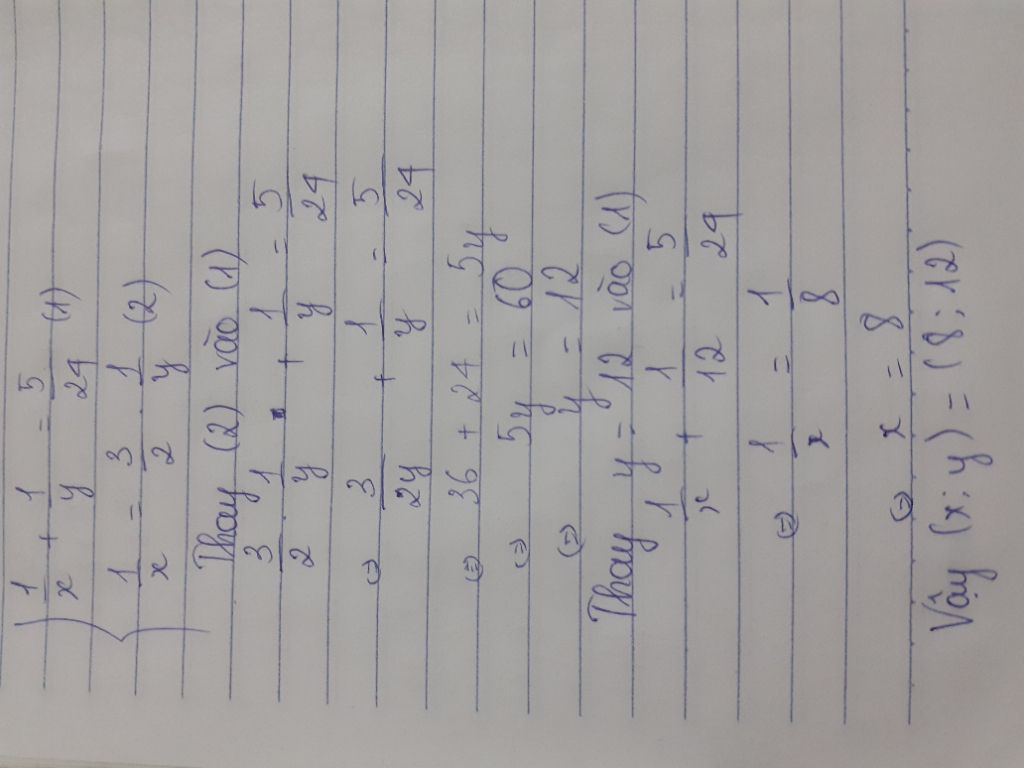 1/x + 1/y = 5/24 (1)
1/x = 3/2 . 1/y (2)
Thay (2) vào (1)
3/2 1/y + 1/y = 5/24
⇔ 3/2y + 1/y = 5/24
⇔ 36 + 24 = 5y
⇔ 5y = 60
⇔ y = 12
Thay y = 12 vào (1)
1/x + 1/12 = 5/24
⇔ 1/x = 1/8
⇔ x = 8
Vậy (x; y) = (8; 12)